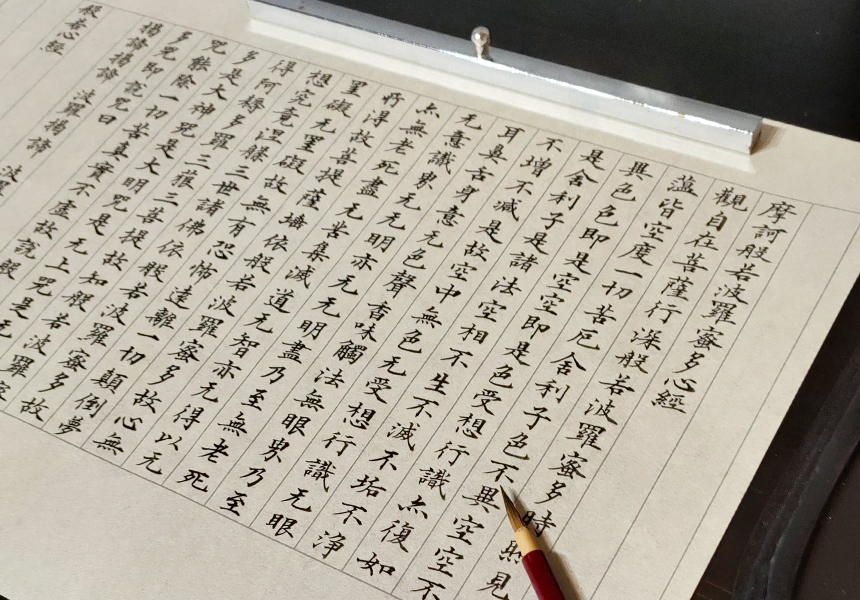 摩訶般若波羅蜜多心經
觀自在菩薩行深般若波羅蜜多時照見
蘊皆空度一切苦厄舍利子色不異空空不
異色色即是空空即是色受想行識亦復如
是舍利子是諸法空相不生不滅不垢不淨
不增不減是故空中無色无受想行識无眼
耳鼻舌身意无色聲香味觸法無眼界乃至
无意識界无无明亦无无明盡乃至無老死
亦無老死盡无苦集滅道无智亦无得以无
所得故菩提薩埵依般若波羅蜜多故心無
罣礙无罣礙故無有恐怖遠離一切顛倒夢
想究竟涅槃三世諸佛依般若波羅蜜多故
得阿耨多羅三藐三菩提故知般若波羅蜜
多是大神咒是大明咒是无上咒是无
咒能除一切苦真實不虛故說般
多咒即說咒曰
揭諦揭諦 波羅揭諦 波羅
般若心經